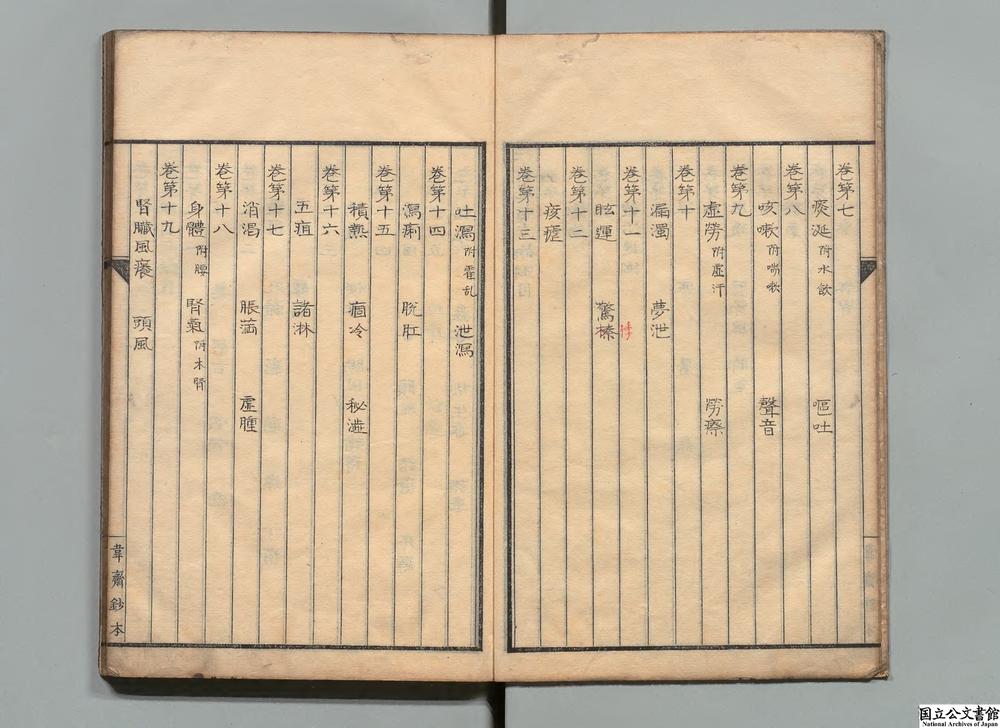 卷第七
痰涎附水飲 嘔吐
卷第八
咳嗽附喘嗽 聲音
卷第九
虛勞附虛汗 勞瘵
卷第十
漏濁 夢泄
卷第十一
眩運 驚悸
卷第十二
痎瘧
卷第十三
吐瀉附霍乱 泄瀉
卷第十四
瀉痢 脫肛
卷第十五
積熱 痼冷 秘澁
卷第十六
五疸 諸淋
卷第十七
消渴 脹滿 虛腫
卷第十八
身體附腰 腎氣附木腎
卷第十九
腎臟風癢 頭風
韋齋鈔本
国立公文書館
National Archives of Japan